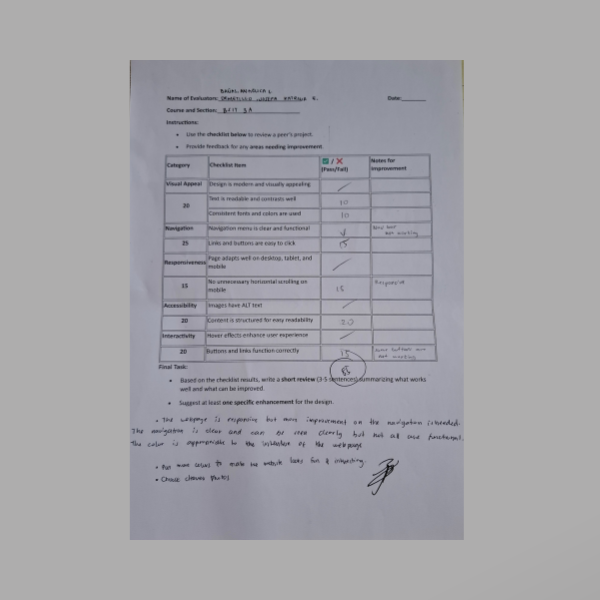 Name of Evaluators:
Date:
Course and Section: BSIT 3A
Instructions:
• Use the checklist below to review a peer's project.
• Provide feedback for any areas needing improvement.
Category Checklist Item ✅ / ❌ (Pass/Fail) Notes for Improvement
Visual Appeal Design is modern and visually appealing /
20 Text is readable and contrasts well 10
Consistent fonts and colors are used 10
Navigation Navigation menu is clear and functional not working
25 Links and buttons are easy to click 15
Responsiveness Page adapts well on desktop, tablet, and mobile /
15 No unnecessary horizontal scrolling on mobile 15 Responsive
Accessibility Images have ALT text /
20 Content is structured for easy readability 20
Interactivity Hover effects enhance user experience /
20 Buttons and links function correctly 15 not working
Final Task:
• Based on the checklist results, write a short review (3-5 sentences) summarizing what works
well and what can be improved.
• Suggest at least one specific enhancement for the design.
• The webpage is responsive but more improvement on the navigation is needed.
The navigation is clear and can be seen clearly but not all are functional.
The color is appropriate to the of the webpage
• Put more colors to make the website looks fun & interesting.
• Choose photos